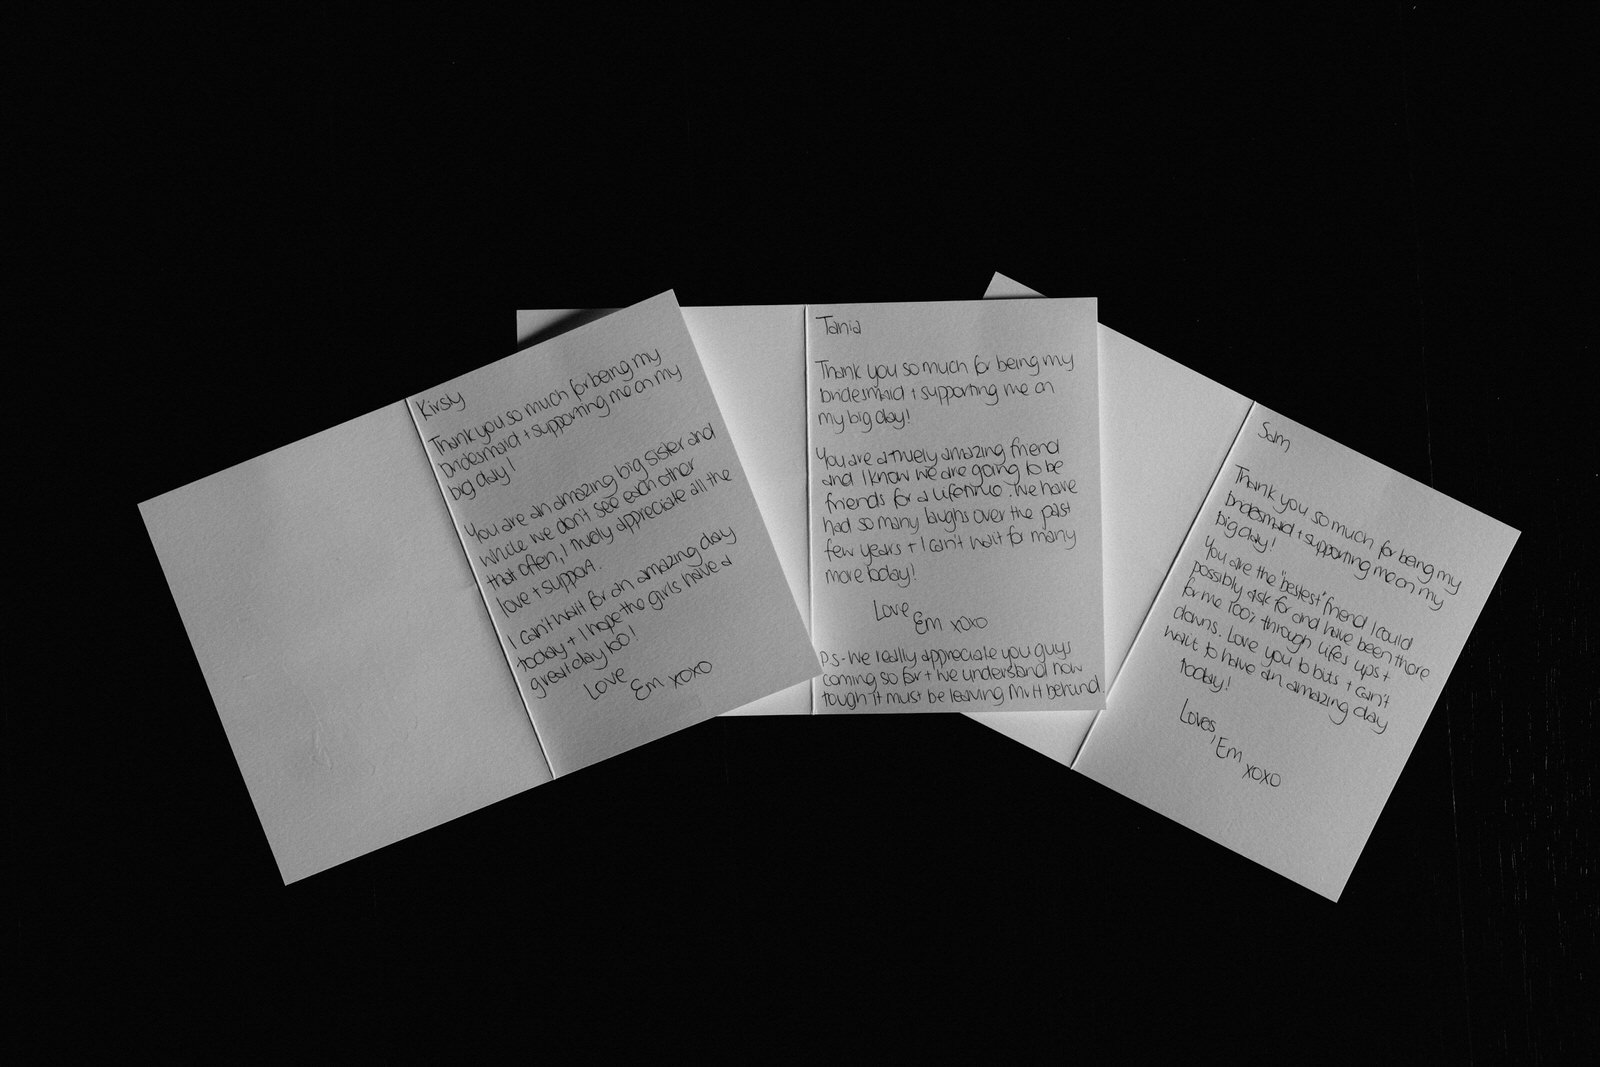 Kirsty
Thank you so much for being my
bridesmaid + supporting me on my
big day!
You are an amazing big sister and
while we don't see each other
that often, I truely appreciate all the
love + support.
I can't wait for an amazing day
today + I hope the girls have a
great day too!
Love
Em xoxo
Tania
Thank you so much for being my
bridesmaid + supporting me on
my big day!
You are a truely amazing friend
and I know we are going to be
friends for a lifetime. We have
had so many laughs over the past
few years + I can't wait for many
more today!
Love
Em xoxo
P.S - We really appreciate you guys
coming so far + we understand how
tough it must be leaving Mr H behind.
Sam
Thank you so much for being my
bridesmaid + supporting me on my
big day!
You are the "bestest" friend I could
possibly ask for and have been there
for me 100% through life's ups +
downs. Love you to bits + can't
wait to have an amazing day
today!
Loves,
Em
xoxo